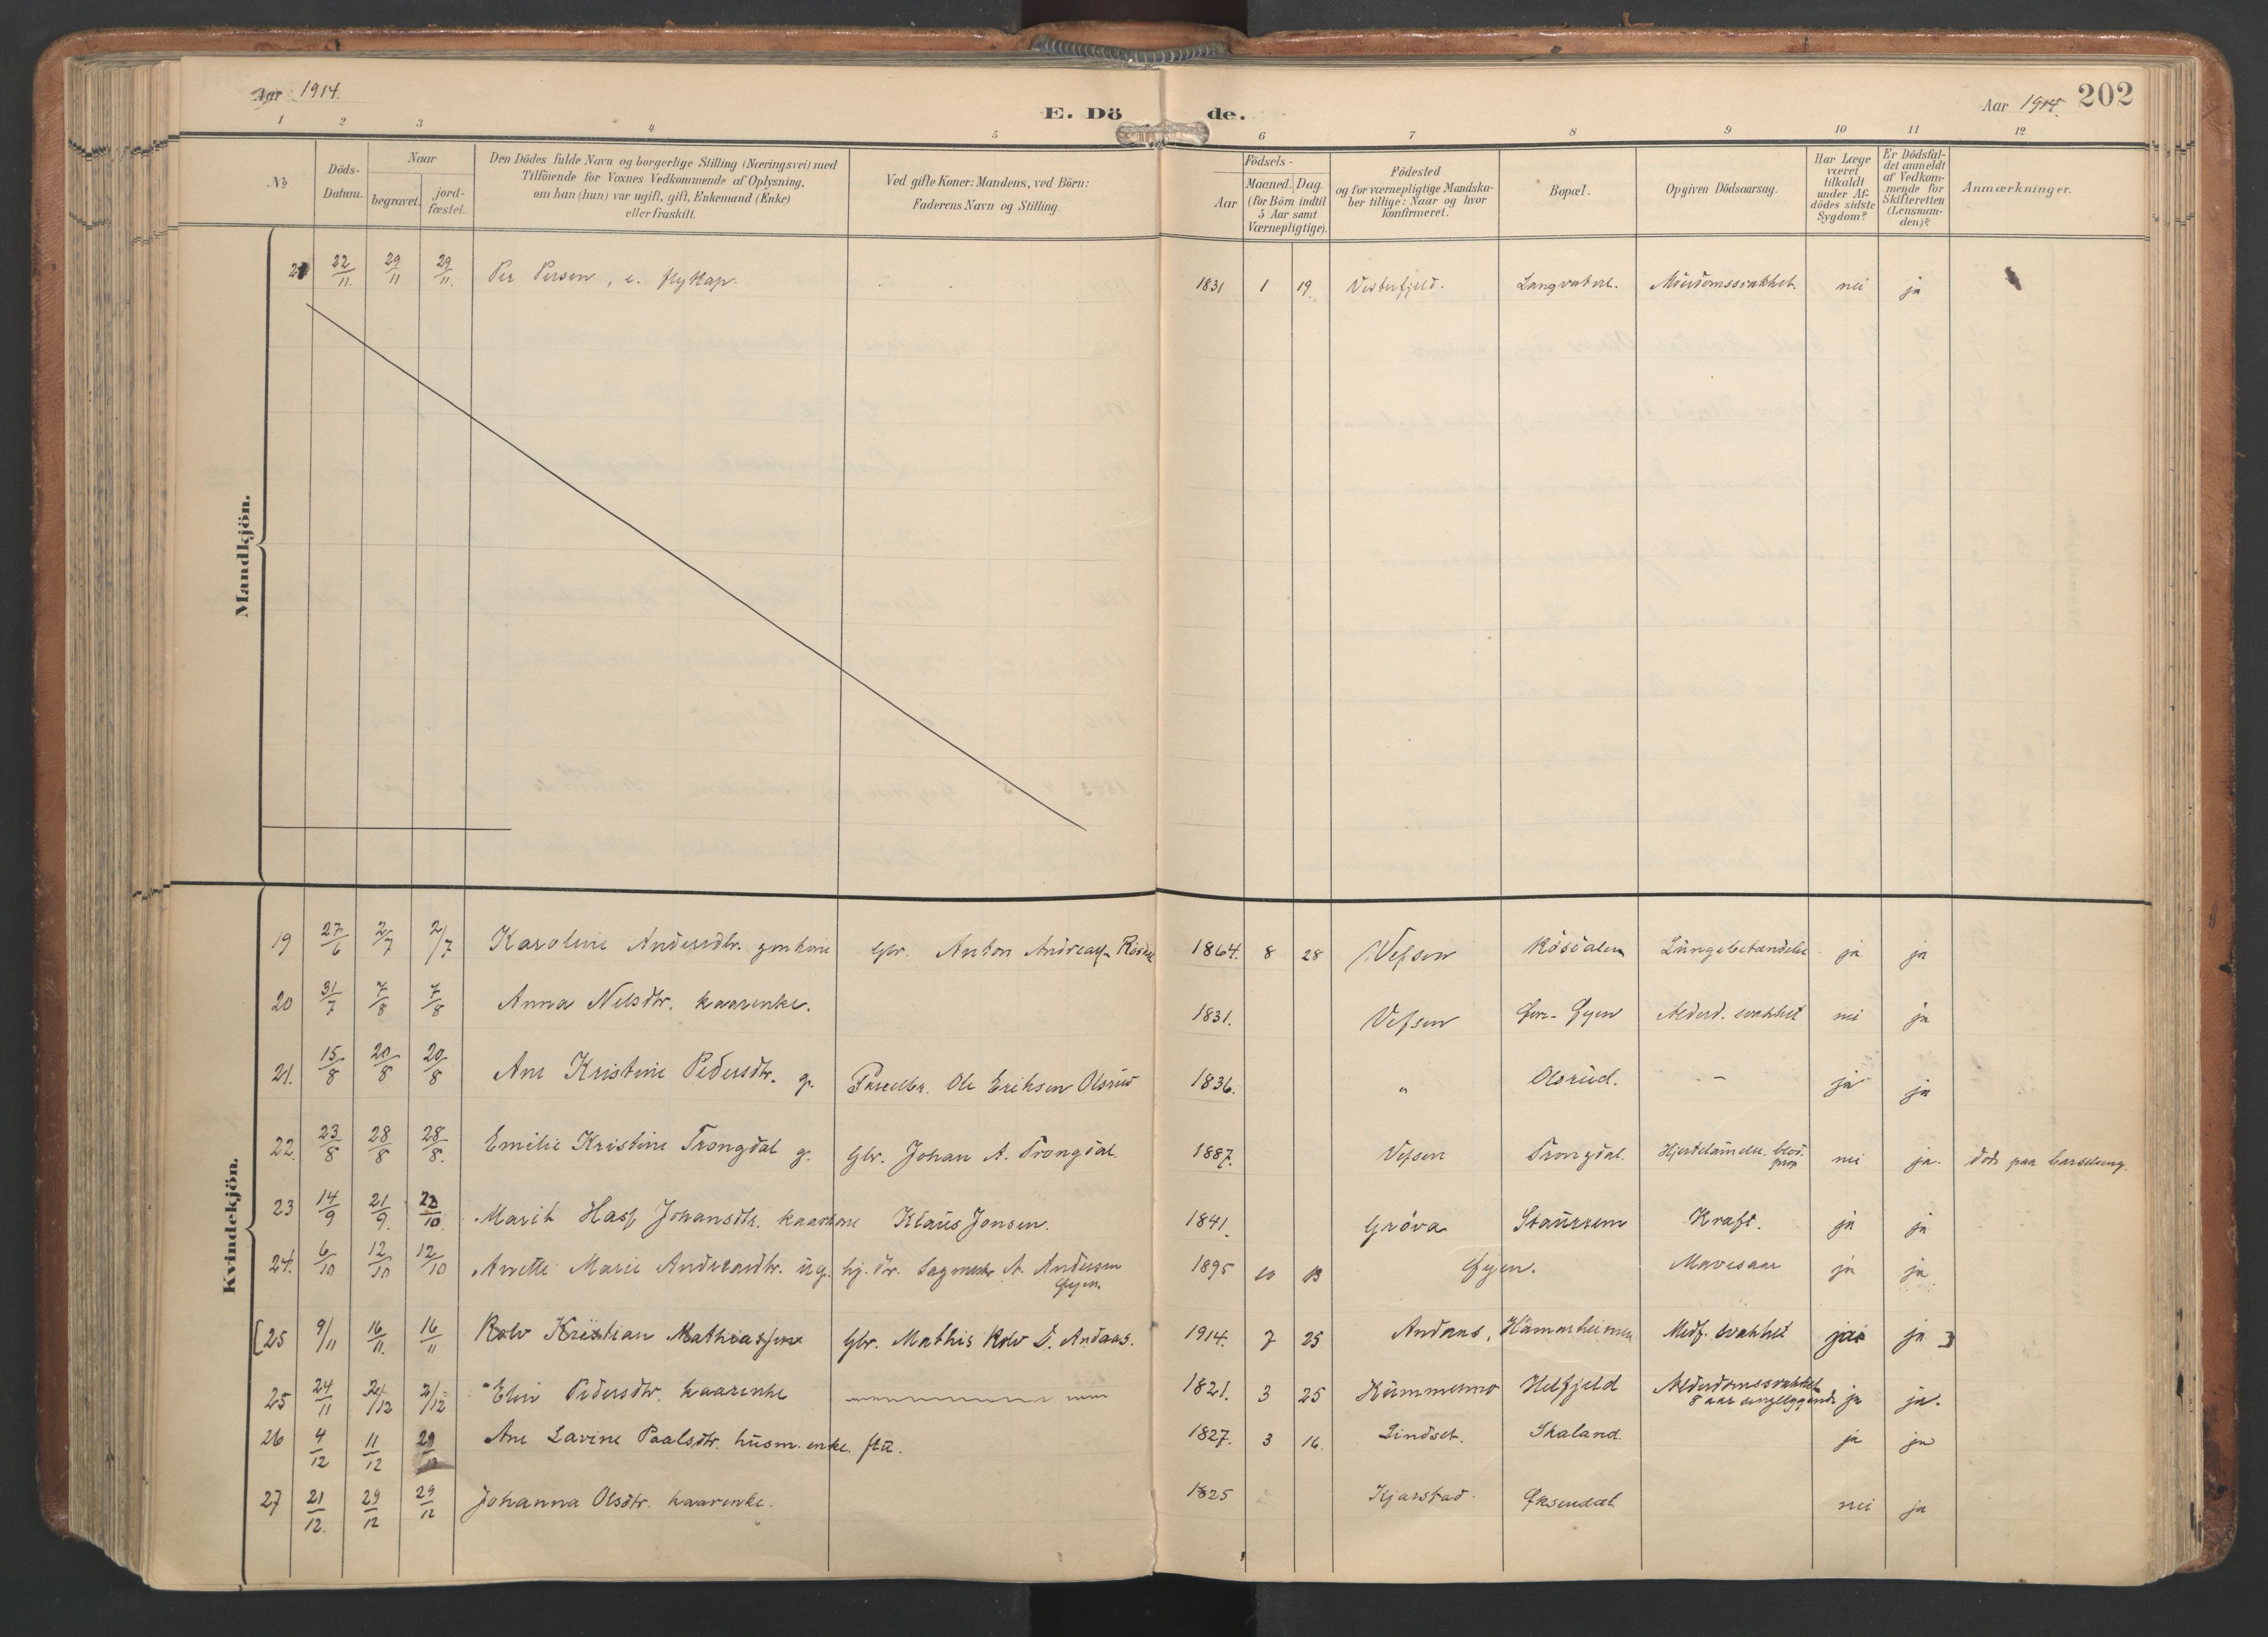 Aar 1914.
E. Döde.
Aar 1914. 202
1 2 3 4 5 6 7 8 9 10 11 12
No
Döds-Datum.
Naar begravet. jordfæstet.
Den Dödes fulde Navn og borgerlige Stilling (Næringsvei) med
Tilföiende for Voxnes Vedkommende af Oplysning,
om han (hun) var ugift, gift, Enkemand (Enke)
eller fraskilt.
Ved gifte Koner: Mandens, ved Börn:
Faderens Navn og Stilling.
Födsels-
Aar Maaned. Dag.
(for Börn indtil
5 Aar samt
Værnepligtige).
Födested
og for værnepligtige Mandska-
ber tillige: Naar og hvor
konfirmeret.
Bopæl.
Opgiven Dödsaarsag.
Har Læge
været
tilkaldt
under Af-
dödes sidste
Sygdom?
Er Dödsfal-
det anmeldt
af Vedkom-
mende for
Skifteretten
(Lensman-
den)?
Anmærkninger.
Mandkjön.
22/11. 29/11 29/11. Per Persen, e. 1831 1 19. Vesterfjeld. Langvatn. nei ja
Kvindekjön.
19 27/6 2/7 2/7 Karoline Andersdtr. Gbr. Anton Andreass. 1864. 8 28 Vefsen Rösdalen Lungebetændelse ja ja
20 31/7 7/8 7/8 Anna Nilsdtr. kaarenke. 1831. Vefsen Alderd. svakhet nei ja
21. 15/8 20/8 20/8 Ane Kristine Pedersdtr. g. Parcelbr. Ole Eriksen Olsrud 1836. " Olsrud. – ja ja
22. 23/8 28/8 28/8. Emilie Kristine Trongdal g. Gbr. Johan A. Trongdal. 1887. Vefsen Trongdal. nei ja. döde paa barselseng.
23 14/9 21/9. /10. Marit Hass Johansdtr. Klaus Jonsen. 1841. Gröva Kræft. ja ja
24. 6/10 12/10 12/10 Anette Marie ug. A. Andersen 1895 10 13 Mavesaar ja ja
[25 9/11 16/11. 16/11 Rolv Kristian Mathiassen Gbr. Mathis Rolv Andaas. 1914. 7 25 Andaas, Medf. svakhet ja ja ]
25 24/11 2/12 2/12 Elin Pedersdtr. kaarenke 1821. 3 25 Hummelmo Helfjeld Alderdomssvakhet 8 aar sengeliggende ja ja.
26 4/12 11/12 29/12 Ane Lavine Paalsdtr. husm. enke. 1827. 3 16. Lindset. Skaland. ja ja
27 21/12. 29/12 29/12 Johanna Olsdtr. kaarenke. 1825 Kjærstad. Öksendal nei ja